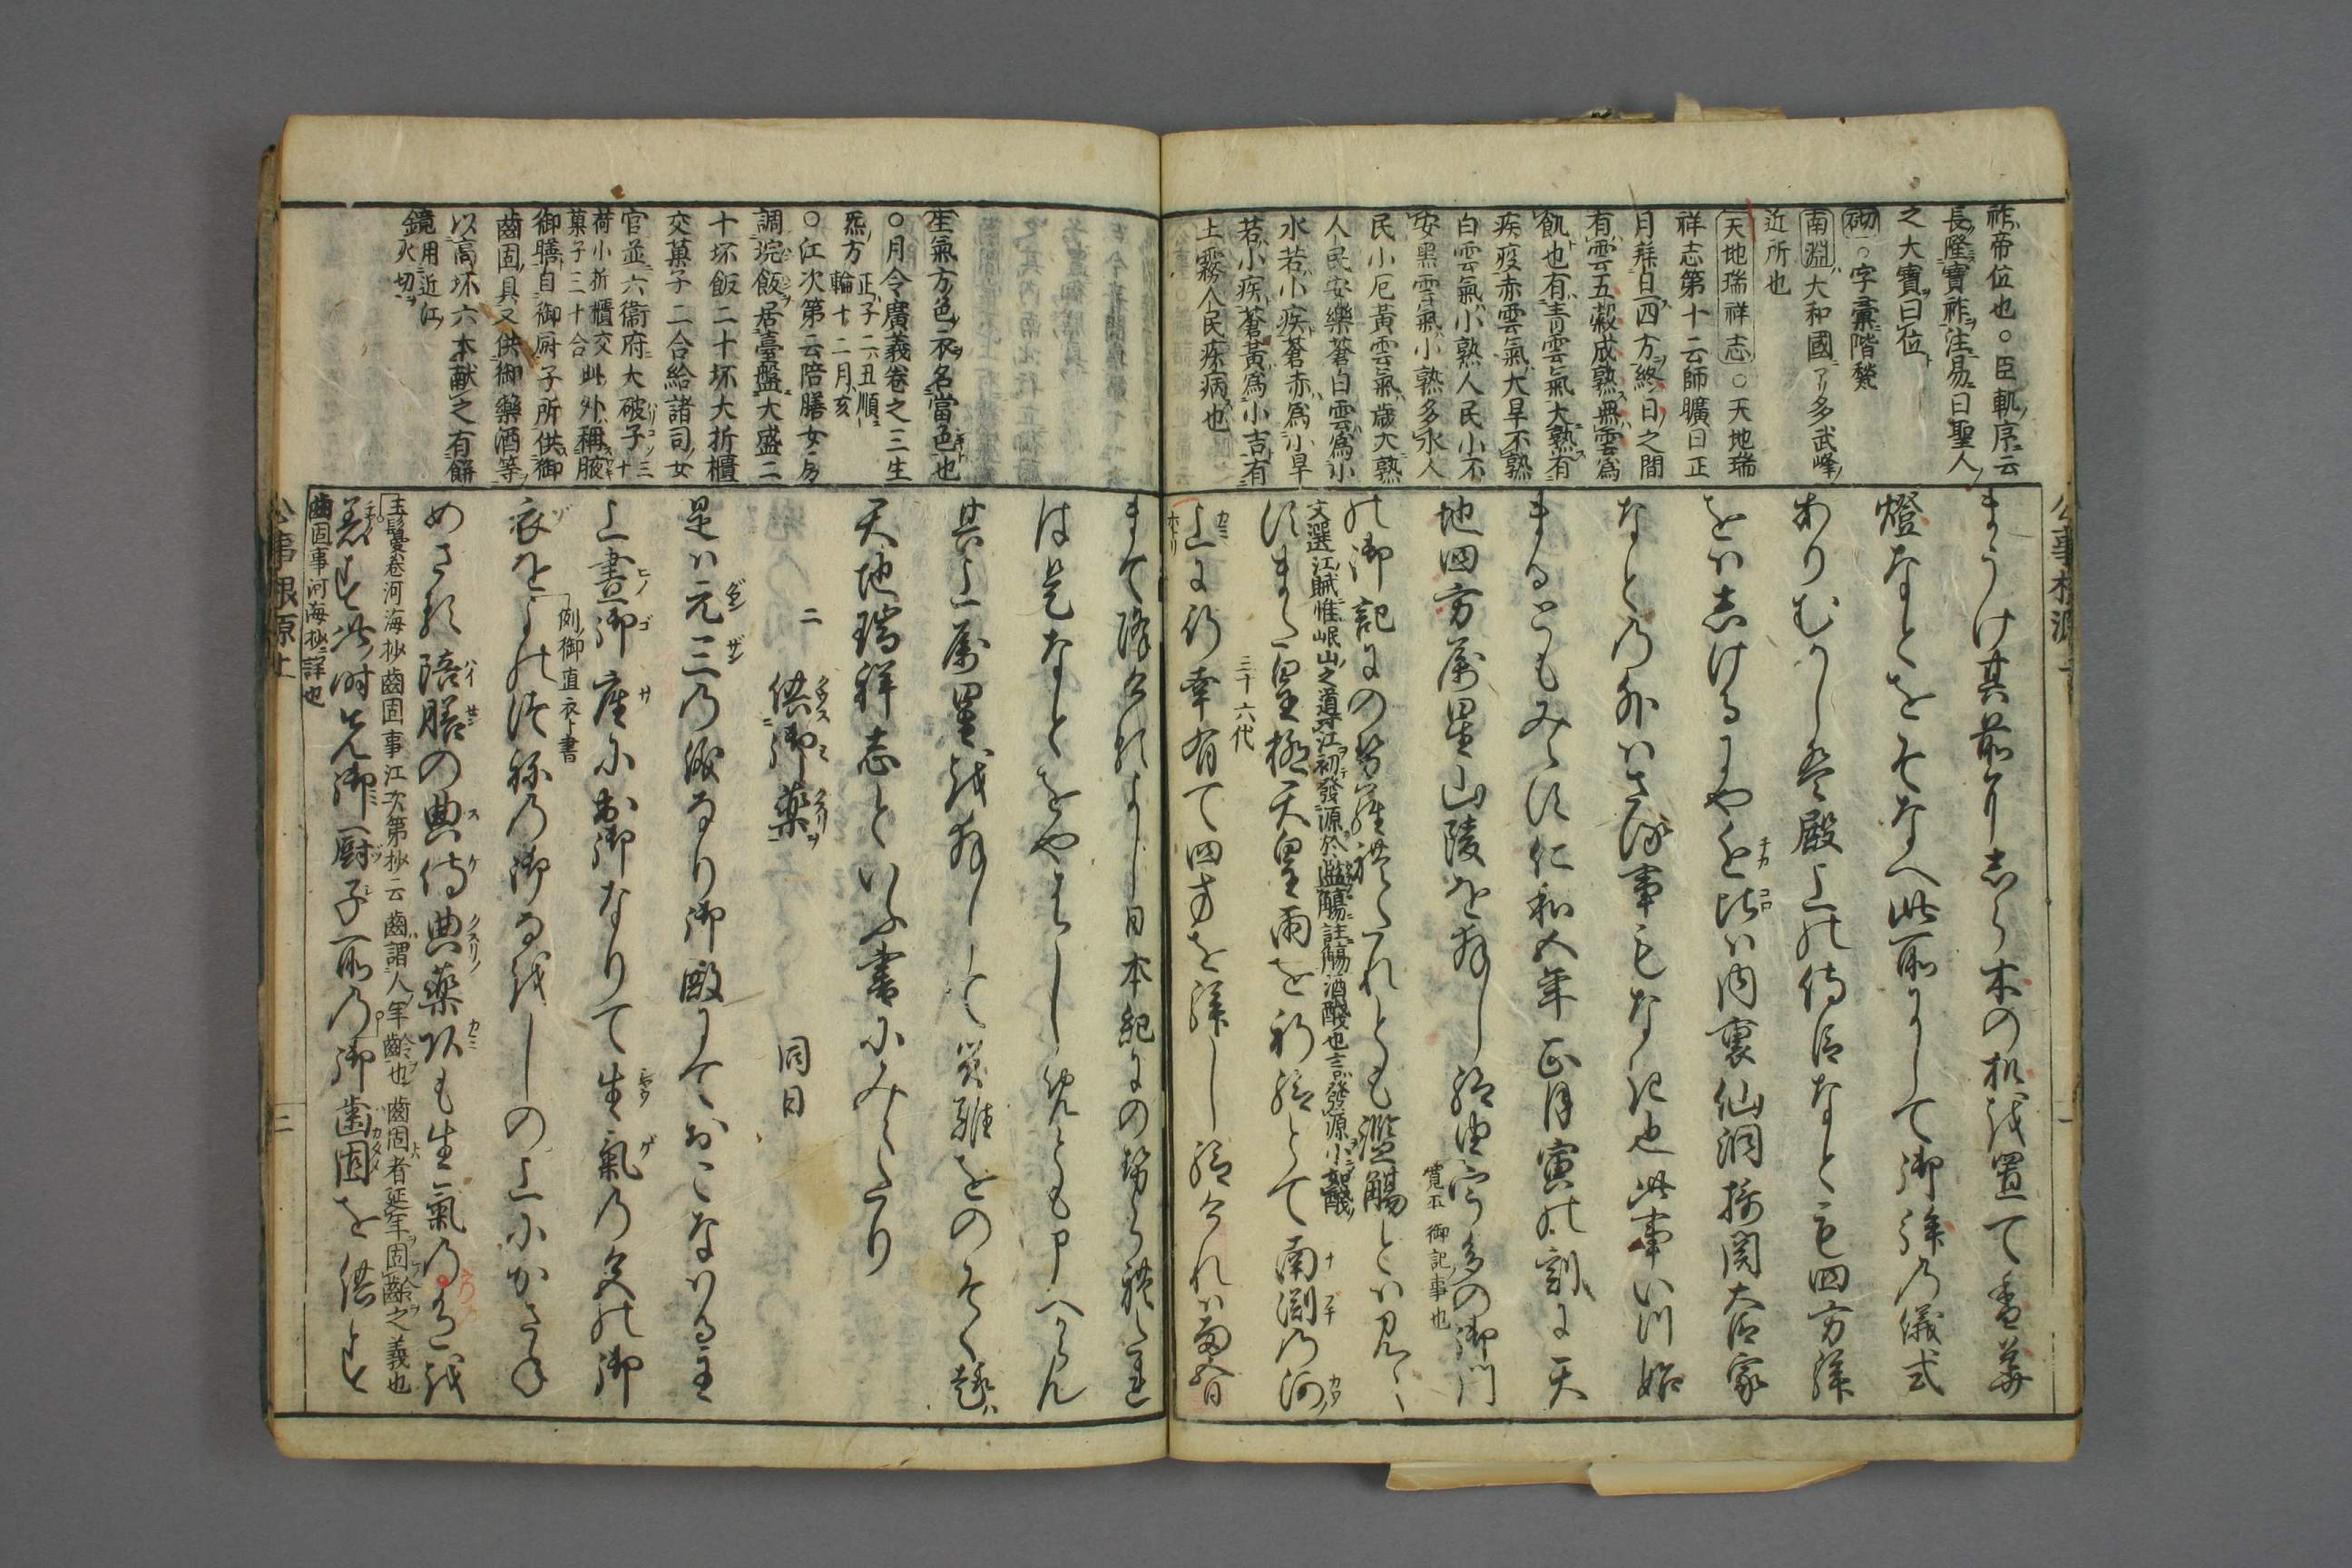 祚帝位也。臣軌序云
長隆寶祚注易曰聖人
之大寶曰位
砌。字彙階甃
南淵大和國アリ多武峰
近所也
天地瑞祥志。天地瑞
祥志第十二云師曠曰正
月拜日四方終日之間
有雲五穀成熟無雲為
飢也有青雲氣大熟有
疾疫赤雲氣大旱不熟
白雲氣小熟人民小不
安黑雲氣小熟多水人
民小厄黃雲氣歲大熟
人民安樂蒼白雲為小
水若小疾蒼赤為小旱
若小疾蒼黃為小吉有
上霧人民疾病也
まうけ其前にしら木の机を置て香華
燈なとをそなへ此所にして御拜の儀式
ありむかしは殿上の侍臣なとも四方拜
をはしけるにや近比は内裏仙洞攝関大臣家
なとの外はさる事もなき也此事いつ始
まるともみえす仁和五年正月寅の刻に天
地四方属星山陵を拜し給由宇多の御門
寛平御記事也
の御記にの
れとも濫觴とは見え
文選江賦惟岷山之道江初發源於濫觴註觴酒醆也言發源小如醆
すまた皇極天皇雨を祈給とて南渕の河
三十六代
上に行幸有て四方を拜し給けれは五日
まて降けるよし日本紀にの
は是なとをや
とも申へからん
其上属星を拜して災難をのそく
天地瑞祥志といふ書にみえたり
生氣方色衣名當色也
。月令廣義卷之三生
炁方正子二丑順
輪十二月亥
。江次第云陪膳女房
調垸飯居臺盤大盛二
十坏飯二十坏大折櫃
交菓子二合給諸司女
官並六衛府大破子三十
荷小折櫃交此外稱腋
菓子三十合
御膳自御厨子所供御
齒固具又供御藥酒等
以高坏六本献之有餅
鏡用近江
火切
二　供御藥　同日
是は元三の儀なり御殿にておこなはる主
上晝御座に出御なりて生氣の色の御
衣を
例御直衣ト書
の御
の上にかさね
めさる陪膳の典侍典藥頭も生氣の色を
玉鬘卷河海抄齒固事江次第抄云齒謂人年齡也齒固者延年固齡之義也
着す此時先御厨子所の御歯固を供す
齒固事河海抄詳也
公事根源上
二